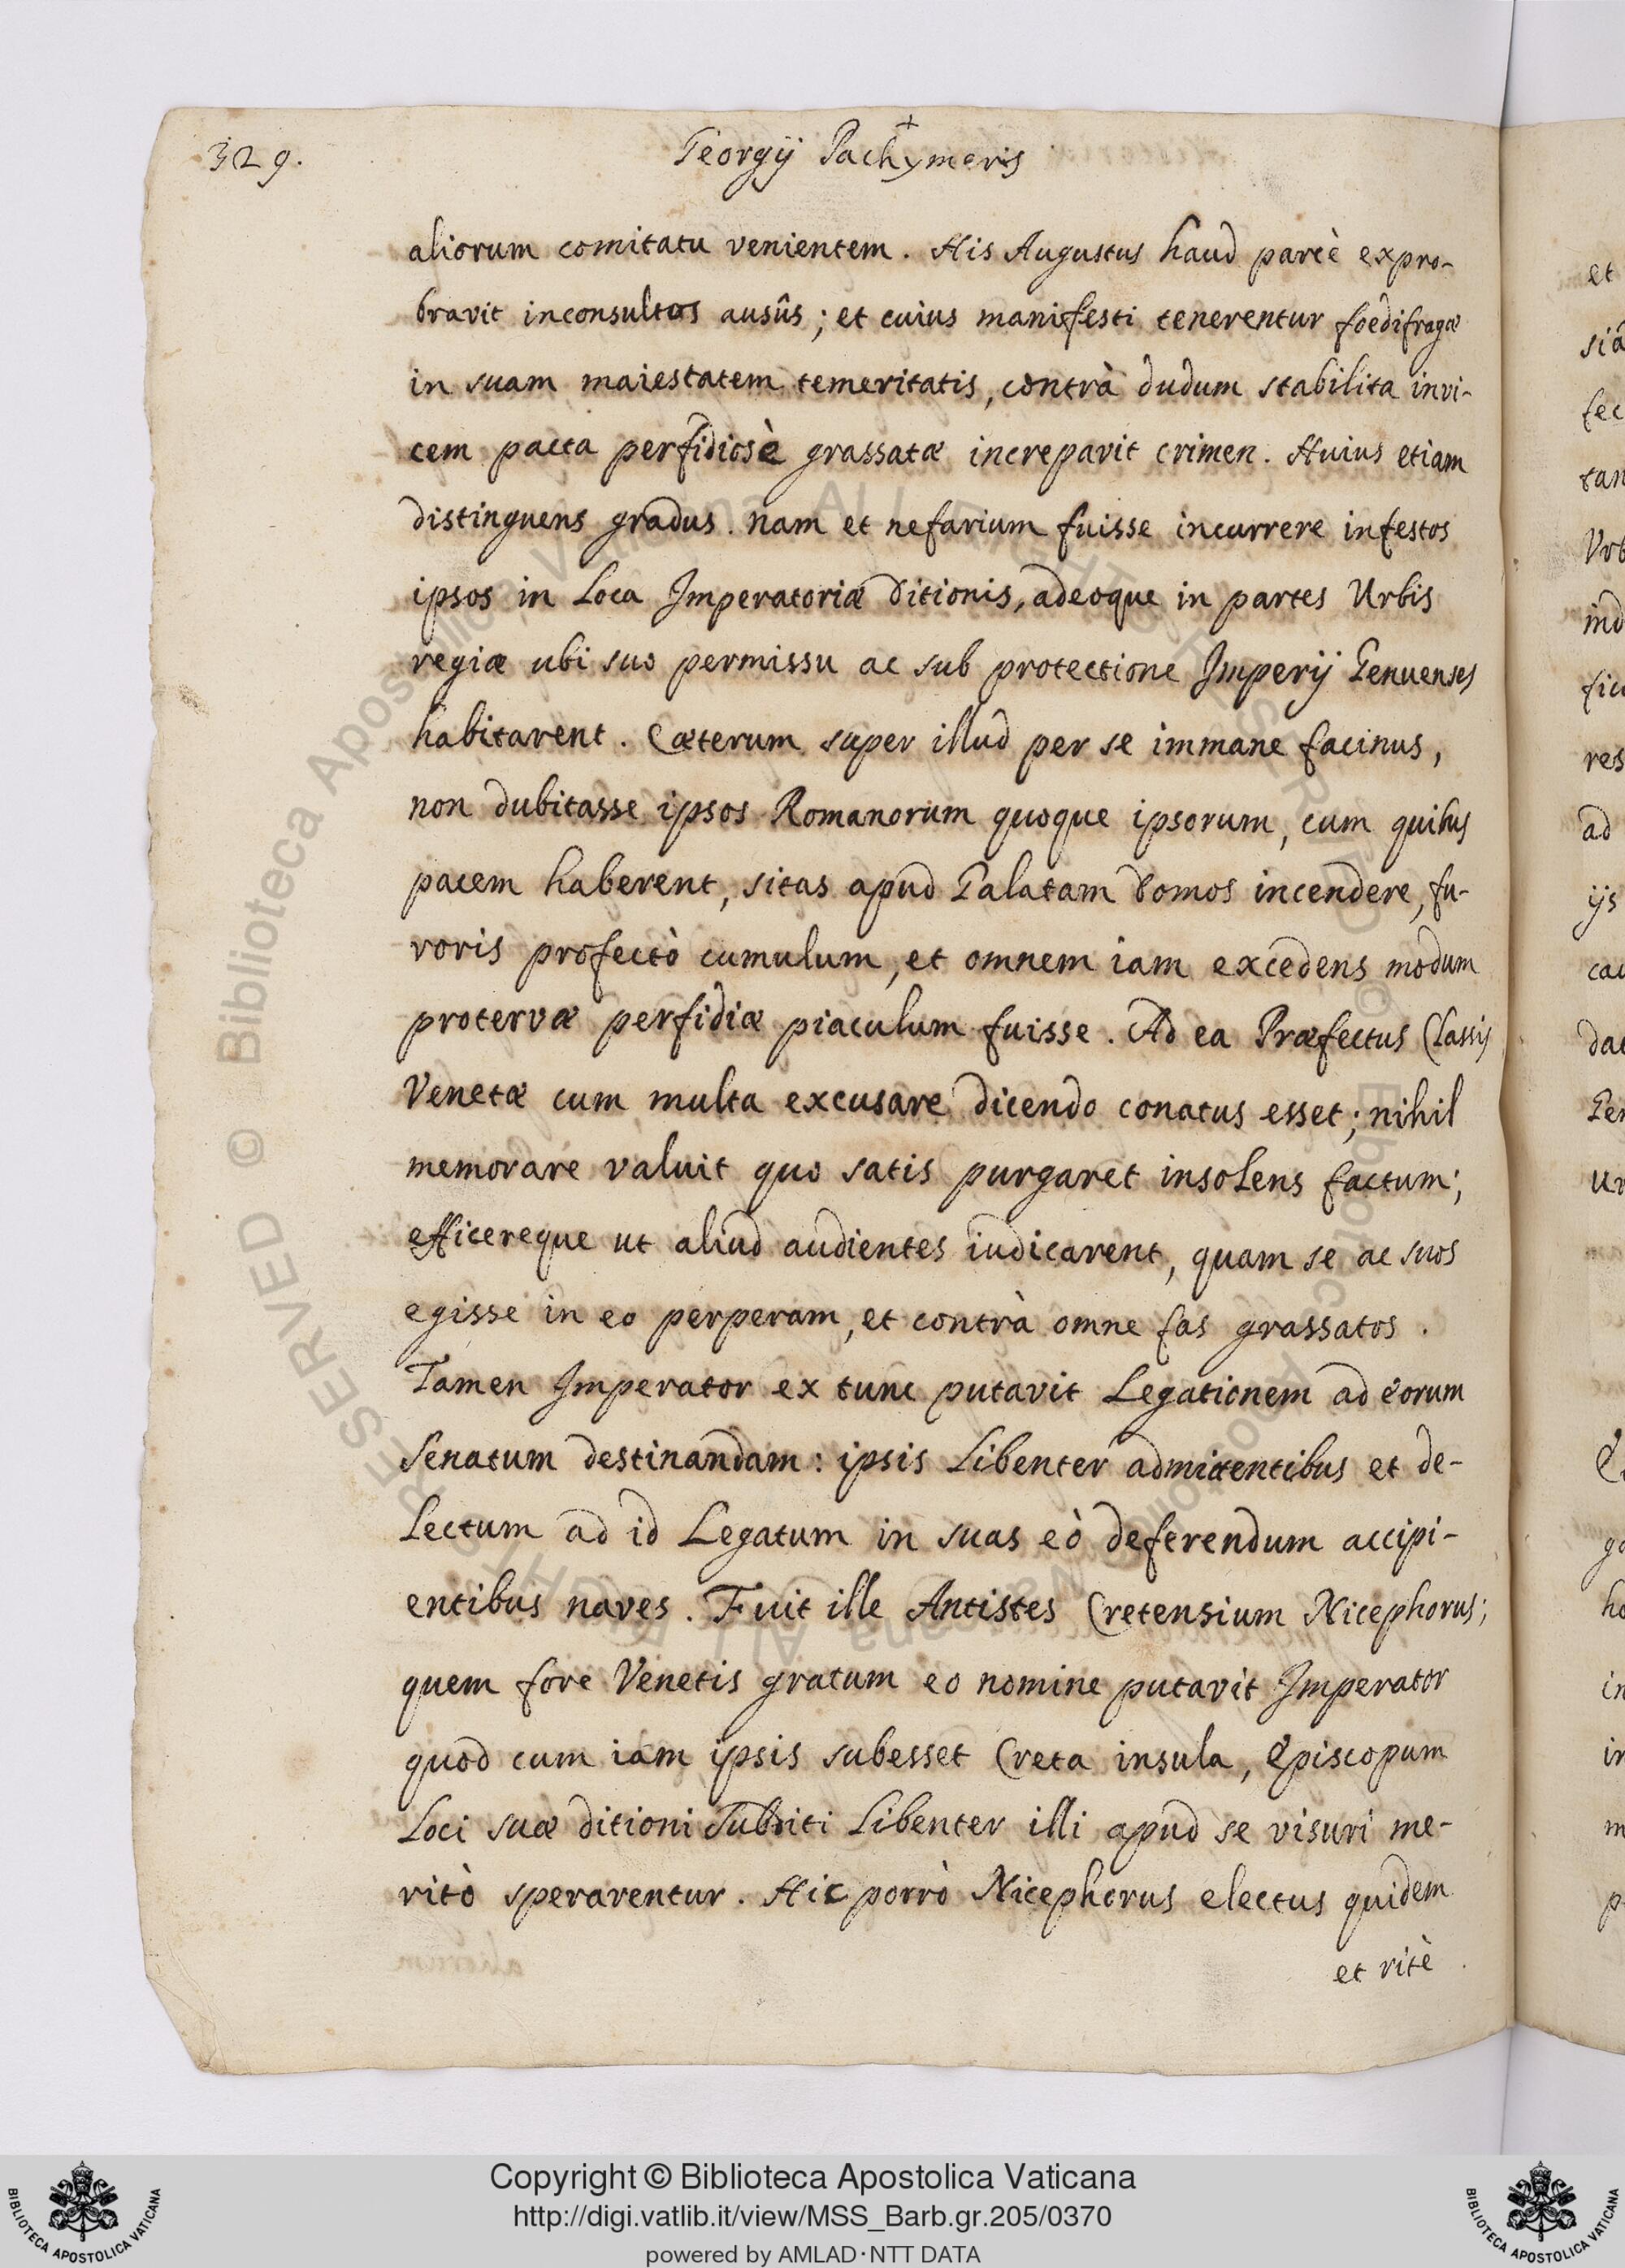 329.
Georgij Pachymeris
aliorum comitatu venientem. His Augustus haud parcè expro-
bravit inconsultos ausûs; et cuius manifesti tenerentur foedifragæ
in suam maiestatem temeritatis, contrà dudum stabilita invi-
cem pacta perfidiosè grassatæ increpavit crimen. Huius etiam
distinguens gradus. nam et nefarium fuisse incurrere infestos
ipsos in Loca Imperatoriæ ditionis, adeoque in partes Urbis
regiæ ubi suo permissu ac sub protectione Imperij Genuenses
habitarent. Cæterum super illud per se immane facinus,
non dubitasse ipsos Romanorum quoque ipsorum, cum quibus
pacem haberent, sitas apud Galatam domos incendere, fu-
roris profectò cumulum, et omnem iam excedens modum
protervæ perfidiæ piaculum fuisse. Ad ea Præfectus Classis
Venetæ cum multa excusare dicendo conatus esset; nihil
memorare valuit quo satis purgaret insolens factum;
efficereque ut aliud audientes iudicarent, quam se ac suos
egisse in eo perperam, et contrà omne fas grassatos.
Tamen Imperator ex tunc putavit Legationem ad eorum
Senatum destinandam: ipsis Libenter admittentibus et de-
lectum ad id Legatum in suas eò deferendum accipi-
entibus naves. Fuit ille Antistes Cretensium Nicephorus;
quem fore Venetis gratum eo nomine putavit Imperator
quod cum iam ipsis subesset Creta insula, Episcopum
Loci suæ ditioni Subditi Libenter illi apud se visuri me-
ritò sperarentur. Hic porrò Nicephorus electus quidem
et ritè
Copyright © Biblioteca Apostolica Vaticana
http://digi.vatlib.it/view/MSS_Barb.gr.205/0370
powered by AMLAD·NTT DATA